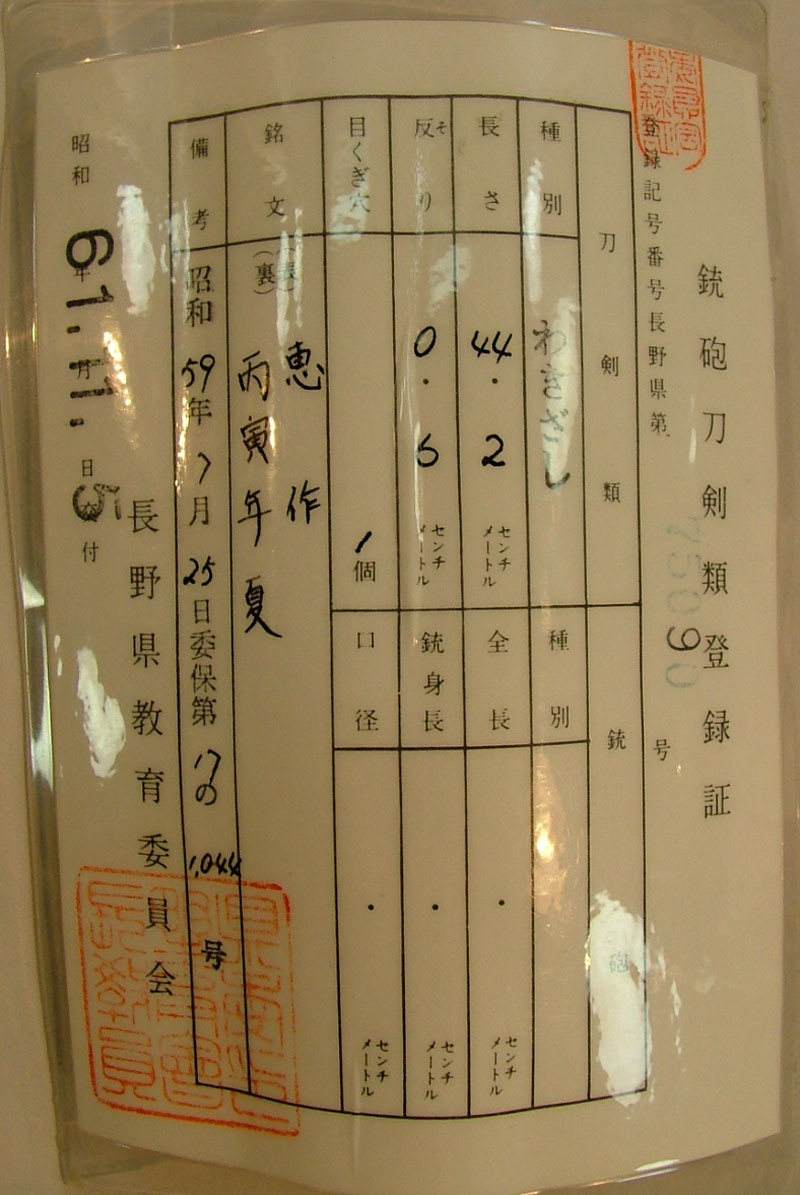 銃砲刀剣類登録証
登録記号番号長野県第 号
刀剣類
種別 わきざし
長さ 44.2 センチメートル
反り そ 0.6 センチメートル
目くぎ穴 1個
銘文 (表) 恵作
(裏) 丙寅年夏
備考 昭和59年7月25日委保第17の1,044号
銃砲
種別
全長 . センチメートル
銃身長 . センチメートル
口径 . センチメートル
長野県教育委員会
昭和61年11月5日付